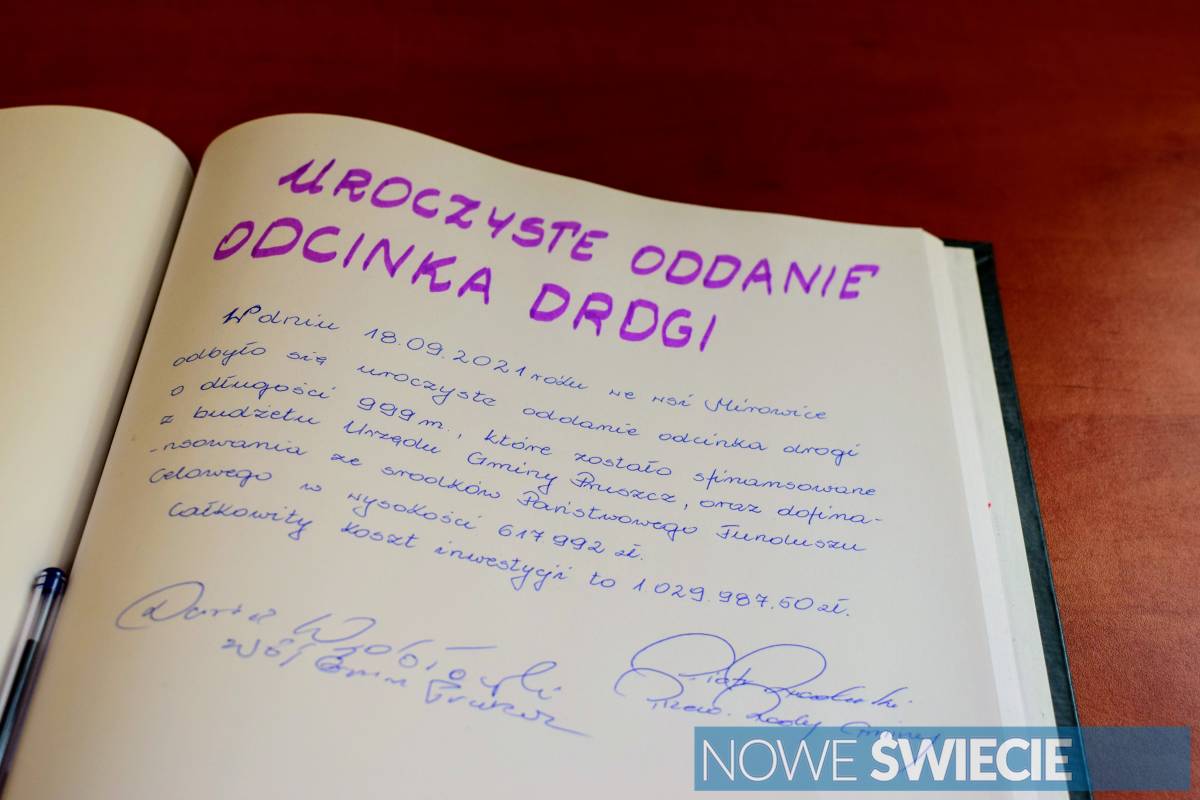 UROCZYSTE ODDANIE
ODCINKA DROGI
W dniu 18.09.2021 roku we wsi Mirowice
odbyło się uroczyste oddanie odcinka drogi
o długości 999 m., które zostało sfinansowane
z budżetu Urzędu Gminy Pruszcz, oraz dofina-
-nsowania ze srodków Państwowego Funduszu
Celowego w wysokości 617 992 zł.
Całkowity koszt inwestycji to 1.029.987.50 zł.
Wójt Gminy Pruszcz
Piotr
Przew. Rady Gminy
NOWE ŚWIECIE